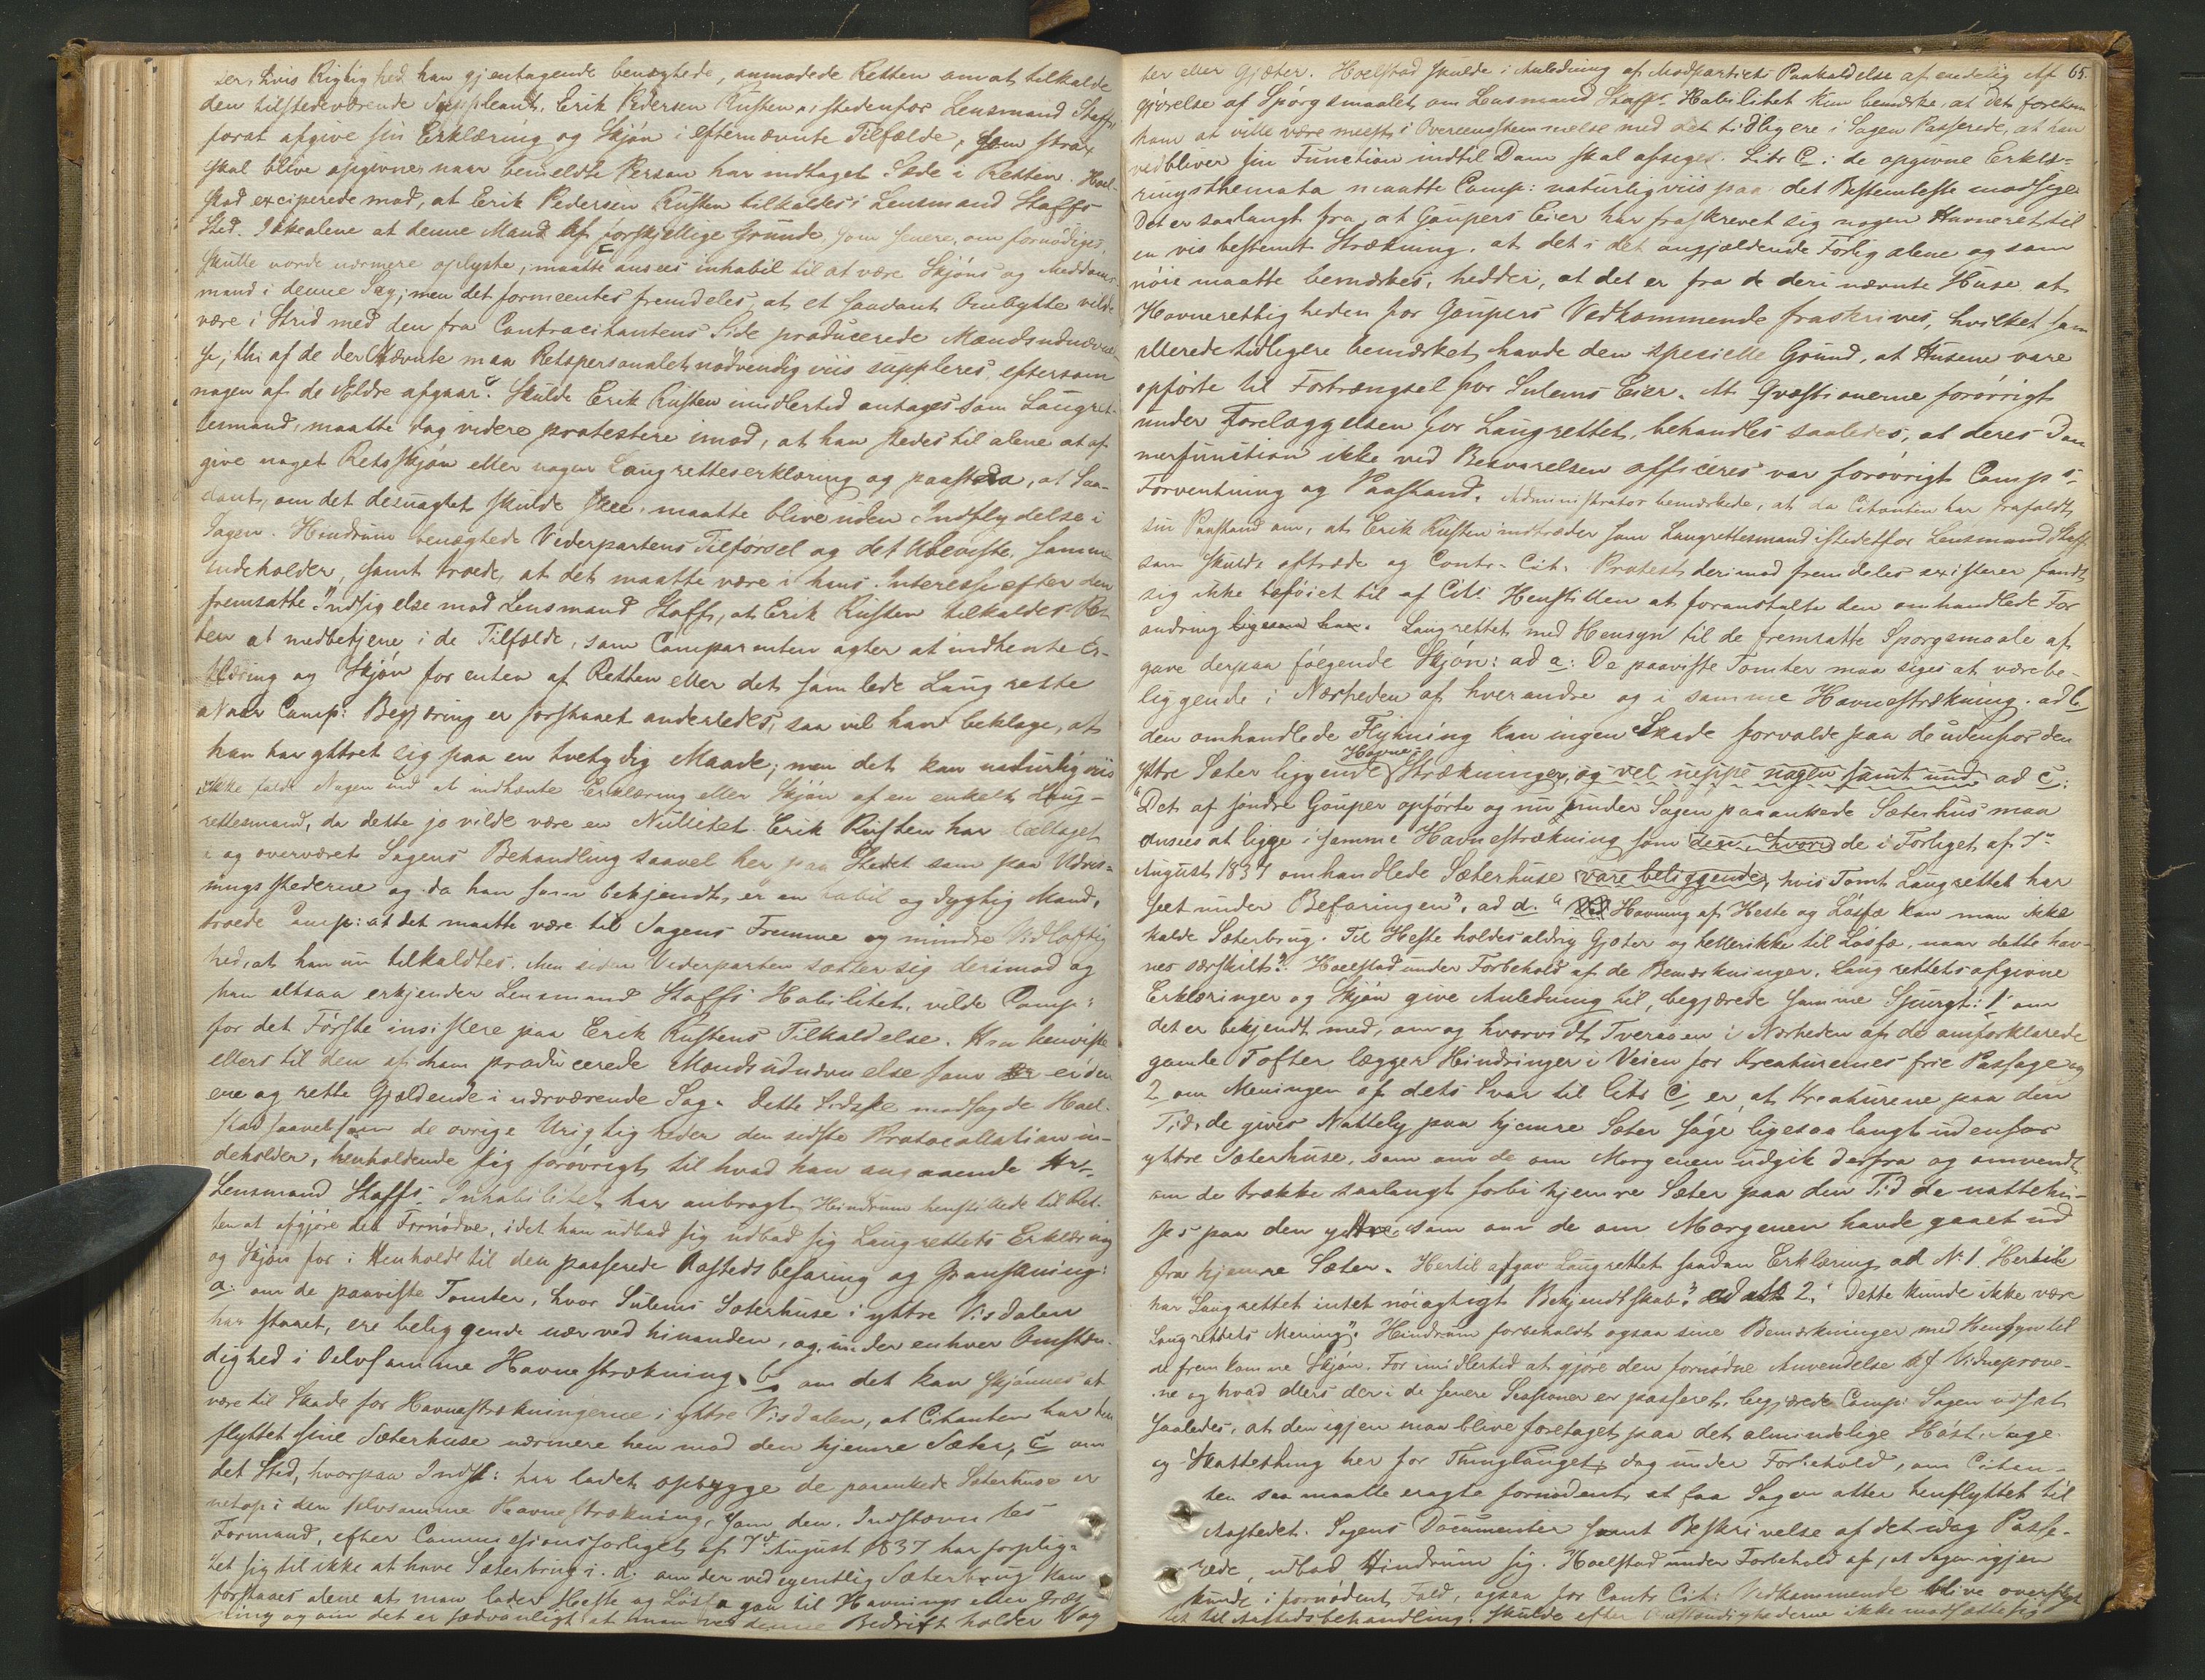 ser, hvis Rigtighed han gjentagende benægtede, anmodede Retten om at tilkalde
den tilstedeværende Suppleant, Erik Pedersen Rusten istedenfor Lensmand Staff,
forat afgive sin Erklæring og Skjøn i efternævnte Tilfælde, som strax
skal blive opgivne, naar bemeldte Person har indtaget Sæde i Retten. Hoel-
stad exciperede mod, at Erik Pedersen Rusten tilkaldes i Lensmand Staffs
Sted. Ikke alene at denne Mand af forskjellige Grunde som senere, om fornødiges
skulle vorde nærmere oplyste, maatte ansees inhabil til at være Skjøns og Meddoms-
mand i denne Sag; men det formeentes fremdeles, at et saadant Ombytte vilde
være i Strid med den fra Contracitantens Side producerede Mandsudnævnel-
se, thi af de der Nævnte maa Retspersonalet nødvendigviis suppleres, eftersom
nogen af de Ældre afgaar. Skulde Erik Rusten imidlertid antages som Laugret-
tesmand, maatte dog videre protestere imod, at han stedes til alene at af-
give noget Retsskjøn eller nogen Laugretteserklæring og paastaa, at Saa-
dant, om det desuagtet skulde skee, maatte blive uden Indflydelse i
Sagen. Hindrum benægtede Vederpartens Tilførsel og det Ubeviste, samme
indeholder, samt troede, at det maatte være i hans Interesse efter den
fremsatte Indsigelse mod Lensmand Staff, at Erik Rusten tilkaldes Ret-
ten at medbetjene i de Tilfælde, som Comparenten agter at indhente Er-
klæring og Skjøn for enten af Retten eller det samlede Laugrette
Naar Comp: Begjæring er forstaaet anderledes, saa vil han beklage, at
han har yttret sig paa en tvetydig Maade; men det kan naturligviis
ikke falde Nogen ind at indhente Erklæring eller Skjøn af en enkelt Laug-
rettesmand, da dette jo vilde være en Nullitet. Erik Rusten har deeltaget
i og overværet Sagens Behandling saavel her paa Stedet som paa
ningsstederne og da han som bekjendt, er en habil og dygtig Mand,
troede Comp: at det maatte være til Sagens Fremme og mindre Vidløftig-
hed, at han nu tilkaldtes. Men siden Vederparten sætter sig derimod og
han altsaa erkjender Lensmand Staffs Habilitet, vilde Comp:
for det Første insistere paa Erik Rustens Tilkaldelse. Han henviste
ellers til den af ham producerede Mandsudnævnelse som er den
ene og rette Gjældende i nærværende Sag. Dette Sidste modsagde Hoel-
stad saavelsom de øvrige Urigtigheder den sidste Protocollation in-
deholder, henholdende sig forøvrigt til hvad han angaaende
Lensmand Staffs Inhabilitet har anbragt. Hindrum henstillede til Ret-
ten at afgjøre det Fornødne, idet han udbad sig udbad sig Laugrettets Erklæring
og Skjøn for i Henhold til den passerede Aastedsbefaring og Granskning:
a. om de paaviste Tomter, hvor Sulems Sæterhuse i yttre Visdalen
har staaet, ere beliggende nær ved hinanden, og under enhver Omstæn-
dighed i selvsamme Havnestrækning b, om det kan skjønnes at
være til Skade for Havnestrækningerne i yttre Visdalen, at Citanten har hen-
flyttet sine Sæterhuse nærmere hen mod den hjemre Sæter, c om
det Sted, hvorpaa Indst: har ladet opbygge de paaankede Sæterhuse er
netop i den selvsamme Havnestrækning, som den Indstævntes
Formand, efter Commissionsforliget af 7de August 1837 har forplig-
tet sig til ikke at have Sæterbrug i. d. om der ved egentlig Sæterbrug kan
forstaaes alene at man lader Heste og Løsfæ gaa til Havnings eller Græs-
ning og om det er sædvanligt at man ved denne Bedrift holder Vog-
65.
ter eller Gjæter. Hoelstad skulde i Anledning af Modpartiets Paakaldelse af endelig Af-
gjørelse af Spørgsmaalet om Lensmand Staffs Habilitet kun bemærke, at det forekom
ham at ville være meest i Overeensstemmelse med det tidligere i Sagen Passerede, at han
vedbliver sin Function indtil Dom skal afsiges. Litr C: de opgivne Erklæ-
ringsthemata maatte Comp: naturligviis paa det Bestemteste modsige
Det er saalangt fra, at Gaupers Eier har fraskrevet sig nogen Havneret til
en vis bestemt Strækning, at det i det angjældende Forlig alene og som
nøie maatte bemærkes, hedder, at det er fra de deri nævnte Huse at
Havnerettigheden for Gaupers Vedkommende fraskrives, hvilket som
allerede tidligere bemærket havde den specielle Grund, at Husene vare
opførte til Fortrængsel for Sulems Eier. At Qvæstionerne forøvrigt
under Forelæggelsen for Laugrettet, behandles saaledes, at deres Dom-
merfunction ikke ved Besvarelsen afficeres var forøvrigt Comps
Forventning og Paastand. Administrator bemærkede, at da Citanten har frafaldt
sin Paastand om, at Erik Rusten indtræder som Laugrettesmand istedetfor Lensmand Staff
som skulde aftræde og Contr. Cit. Protest derimod fremdeles existerer fandt
sig ikke beføiet til af Cits Henstillen at foranstalte den omhandlede For-
andring ligesom han. Laugrettet med Hensyn til de fremsatte Spørgsmaale af-
gave derpaa følgende Skjøn: ad a: De paaviste Tomter maa siges at være be-
liggende i Nærheden af hverandre og i samme Havnestrækning. ad b,
den omhandlede Flytning kan ingen Skade forvolde paa de udenfor den
yttre Sæter liggende Havne-Strækninger, og vel neppe nogen samt ind. ad c:
"Det af søndre Gauper opførte og nu under Sagen paaankede Sæterhus maa
ansees at ligge i samme Havnestrækning som den, hvori de i Forliget af 7de
August 1837 omhandlede Sæterhuse vare beliggende, hvis Tomt Laugrettet har
seet under Befaringen". ad d. "Ved Havning af Heste og Løsfæ kan man ikke
kalde Sæterbrug. Til Heste holdes aldrig Gjæter og hellerikke til Løsfæ, naar dette hav-
nes særskilt". Hoelstad under Forbehold af de Bemærkninger, Laugrettets afgivne
Erklæringer og Skjøn give Anledning til, begjærede samme Spurgt: 1 om
det er bekjendt med, om og hvorvidt Tveraaen i Nærheden af de omforklarede
gamle Tofter lægger Hindringer i Veien for Kreaturernes frie Passage og
2 om Meningen af dets Svar til Litr C er, at Kreaturene paa den
Tid, de gives Nattely paa hjemre Sæter søge ligesaa langt udenfor
yttre Sæterhuse, som om de om Morgenen udgik derfra og omvendt,
om de trække saalangt forbi hjemre Sæter paa den Tid de nattehu-
ses paa den yttre som om de om Morgenen havde gaaet ud
fra hjemre Sæter. Hertil afgav Laugrettet saadan Erklæring ad No 1. "Hertil
har Laugrettet intet nøiagtigt Bekjendtskab". ad 2. "Dette kunde ikke være
Laugrettets Mening". Hindrum forbeholdt ogsaa sine Bemærkninger med Hensyn til
de fremkomne Skjøn. For imidlertid at gjøre den fornødne Anvendelse af Vidneprove-
ne og hvad ellers der i de senere Sessioner er passeret, begjærede Comp: Sagen udsat
saaledes, at den igjen maa blive foretaget paa det almindelige Høst, Sage
og Skattething her for Thinglauget, dog under Forbehold, om Citan-
ten saa maatte eragte fornødent, at faa Sagen atter henflyttet til
Aastedet. Sagens Documenter samt Beskrivelse af det idag Passe-
rede, udbad Hindrum sig. Hoelstad under Forbehold af, at Sagen igjen
kunde i fornødent Fald, ogsaa for Contr Cit: Vedkommende blive overflyt-
tet til Aastedsbehandling, skulde efter Omstændighederne ikke modsætte sig